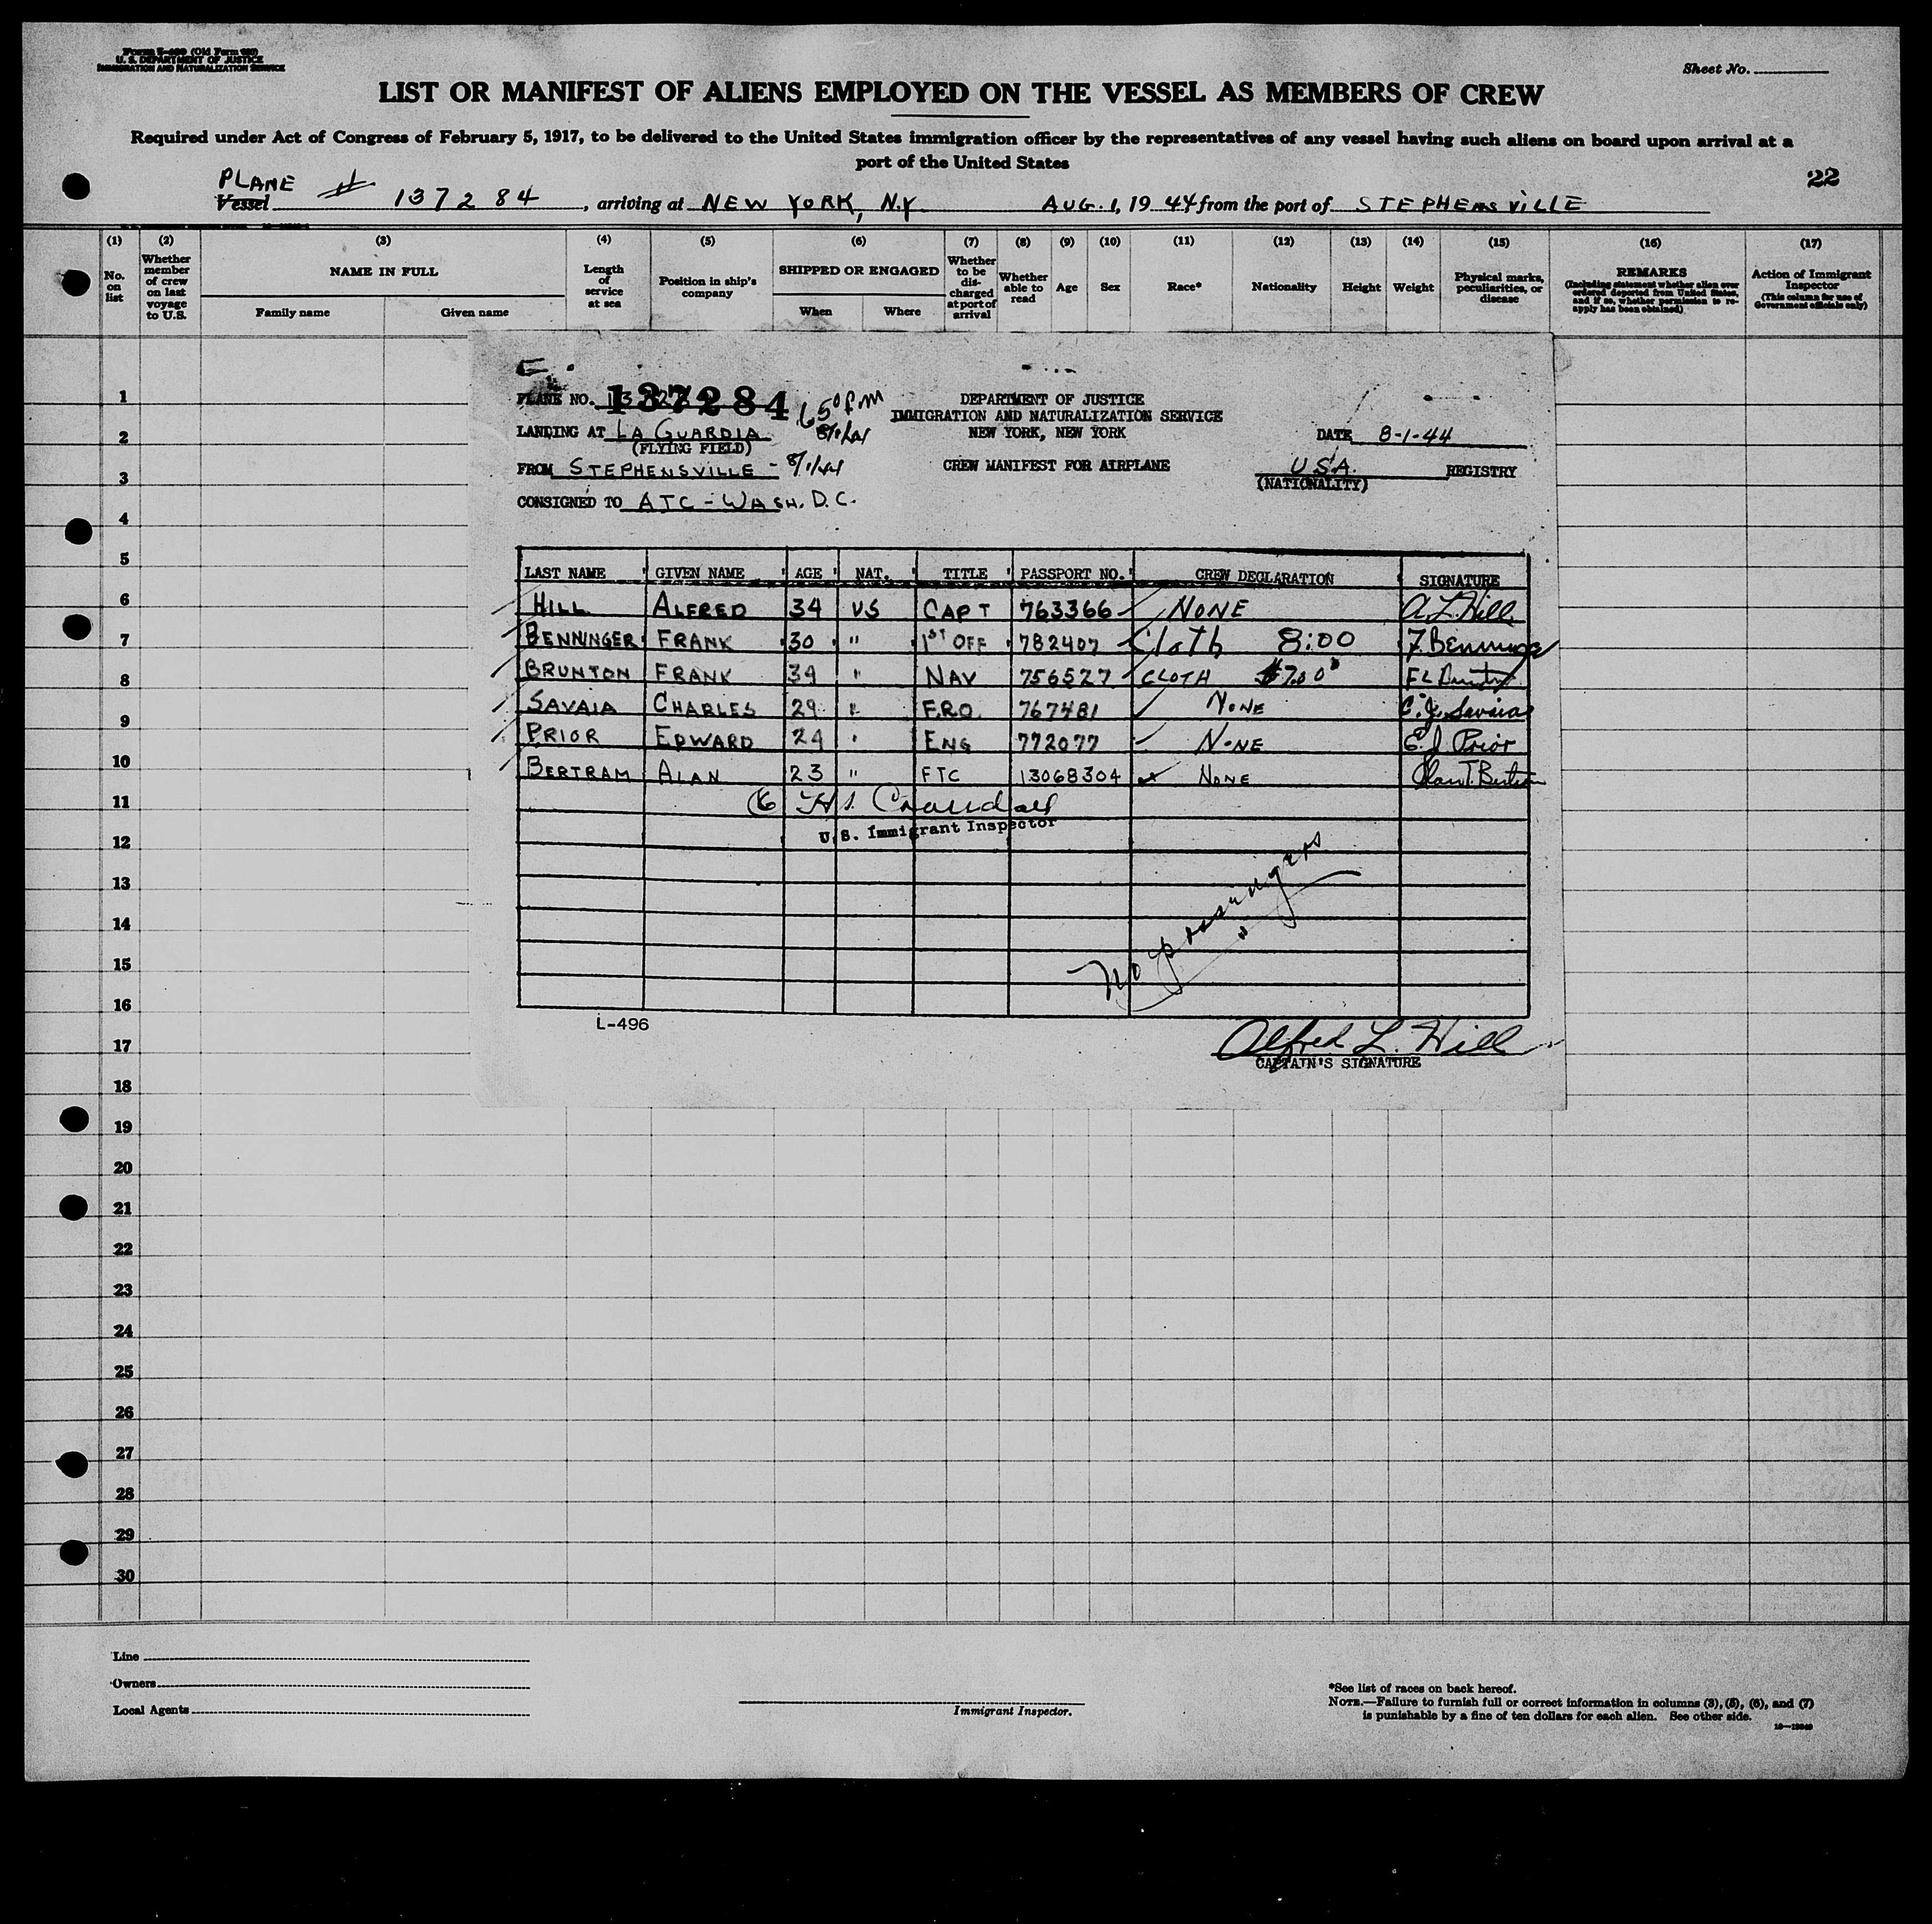 Form I-489 (Old Form 680)
U. S. DEPARTMENT OF JUSTICE
IMMIGRATION AND NATURALIZATION SERVICE
Sheet No.
LIST OR MANIFEST OF ALIENS EMPLOYED ON THE VESSEL AS MEMBERS OF CREW
Required under Act of Congress of February 5, 1917, to be delivered to the United States immigration officer by the representatives of any vessel having such aliens on board upon arrival at a
port of the United States
22
PLANE
Vessel # 137284, arriving at NEW YORK, N.Y. AUG. 1, 1944 from the port of STEPHENSVILLE
(1) (2) (3) (4) (5) (6) (7) (8) (9) (10) (11) (12) (13) (14) (15) (16) (17)
No. on list
Whether member of crew on last voyage to U.S.
NAME IN FULL
Family name Given name
Length of service at sea
Position in ship's company
SHIPPED OR ENGAGED
When Where
Whether to be discharged at port of arrival
Whether able to read
Age
Sex
Race*
Nationality
Height
Weight
Physical marks, peculiarities, or disease
REMARKS
(Including statement whether alien ever ordered deported from United States, and if so, whether permission to reapply has been obtained)
Action of Immigrant Inspector
(This column for use of Government officials only)
PLANE NO. 137284 650 PM
DEPARTMENT OF JUSTICE
IMMIGRATION AND NATURALIZATION SERVICE
NEW YORK, NEW YORK
LANDING AT LA GUARDIA 8/1/44
(FLYING FIELD)
DATE 8-1-44
FROM STEPHENSVILLE - 8/1/44
CREW MANIFEST FOR AIRPLANE
USA. REGISTRY
(NATIONALITY)
CONSIGNED TO ATC - WASH. D.C.
LAST NAME GIVEN NAME AGE NAT. TITLE PASSPORT NO. CREW DECLARATION SIGNATURE
HILL ALFRED 34 US CAPT 763366 NONE A.L. Hill
BENNINGER FRANK 30 " 1ST OFF 782407 Cloth 8:00 F. Benninger
BRUNTON FRANK 34 " NAV 756527 CLOTH $7.00 F L Brunton
SAVAIA CHARLES 29 " F.R.O. 767481 NONE C. J. Savaia
PRIOR EDWARD 24 " ENG 772077 NONE E. J. Prior
BERTRAM ALAN 23 " FTC 13068304 NONE Alan T. Bertram
6 H S. Crandall
U. S. Immigrant Inspector
No passengers
L-496
Alfred L. Hill
CAPTAIN'S SIGNATURE
1
2
3
4
5
6
7
8
9
10
11
12
13
14
15
16
17
18
19
20
21
22
23
24
25
26
27
28
29
30
Line
Owners
Local Agents
Immigrant Inspector.
*See list of races on back hereof.
NOTE.—Failure to furnish full or correct information in columns (3), (5), (6), and (7)
is punishable by a fine of ten dollars for each alien. See other side.